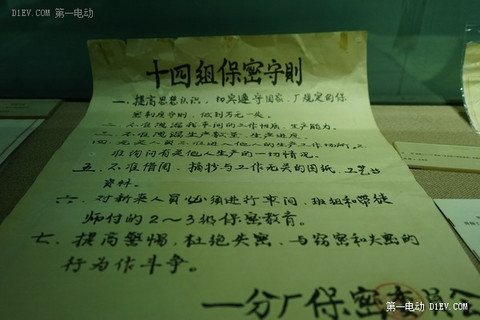 D1EV.COM 第一电动
十四组保密守则
一、提高思想认识，切实遵守国家、厂规定的保
密制度守则，做到万无一失。
二、不准泄漏我车间的工作性质，生产能力。
三、不准泄漏生产数量，生产进度。
四、无关人员不准进入他人的生产工作场所，不
准询问有关他人生产的一切情况。
五、不准借阅，摘抄与工作无关的图纸，工艺与
资料。
六、对新来人员必须进行车间，班组和带徒
师付的2～3级保密教育。
七、提高警惕，杜绝失密，与窃密和失密的
行为作斗争。
一分厂保密委员会
第一电动 D1EV.COM